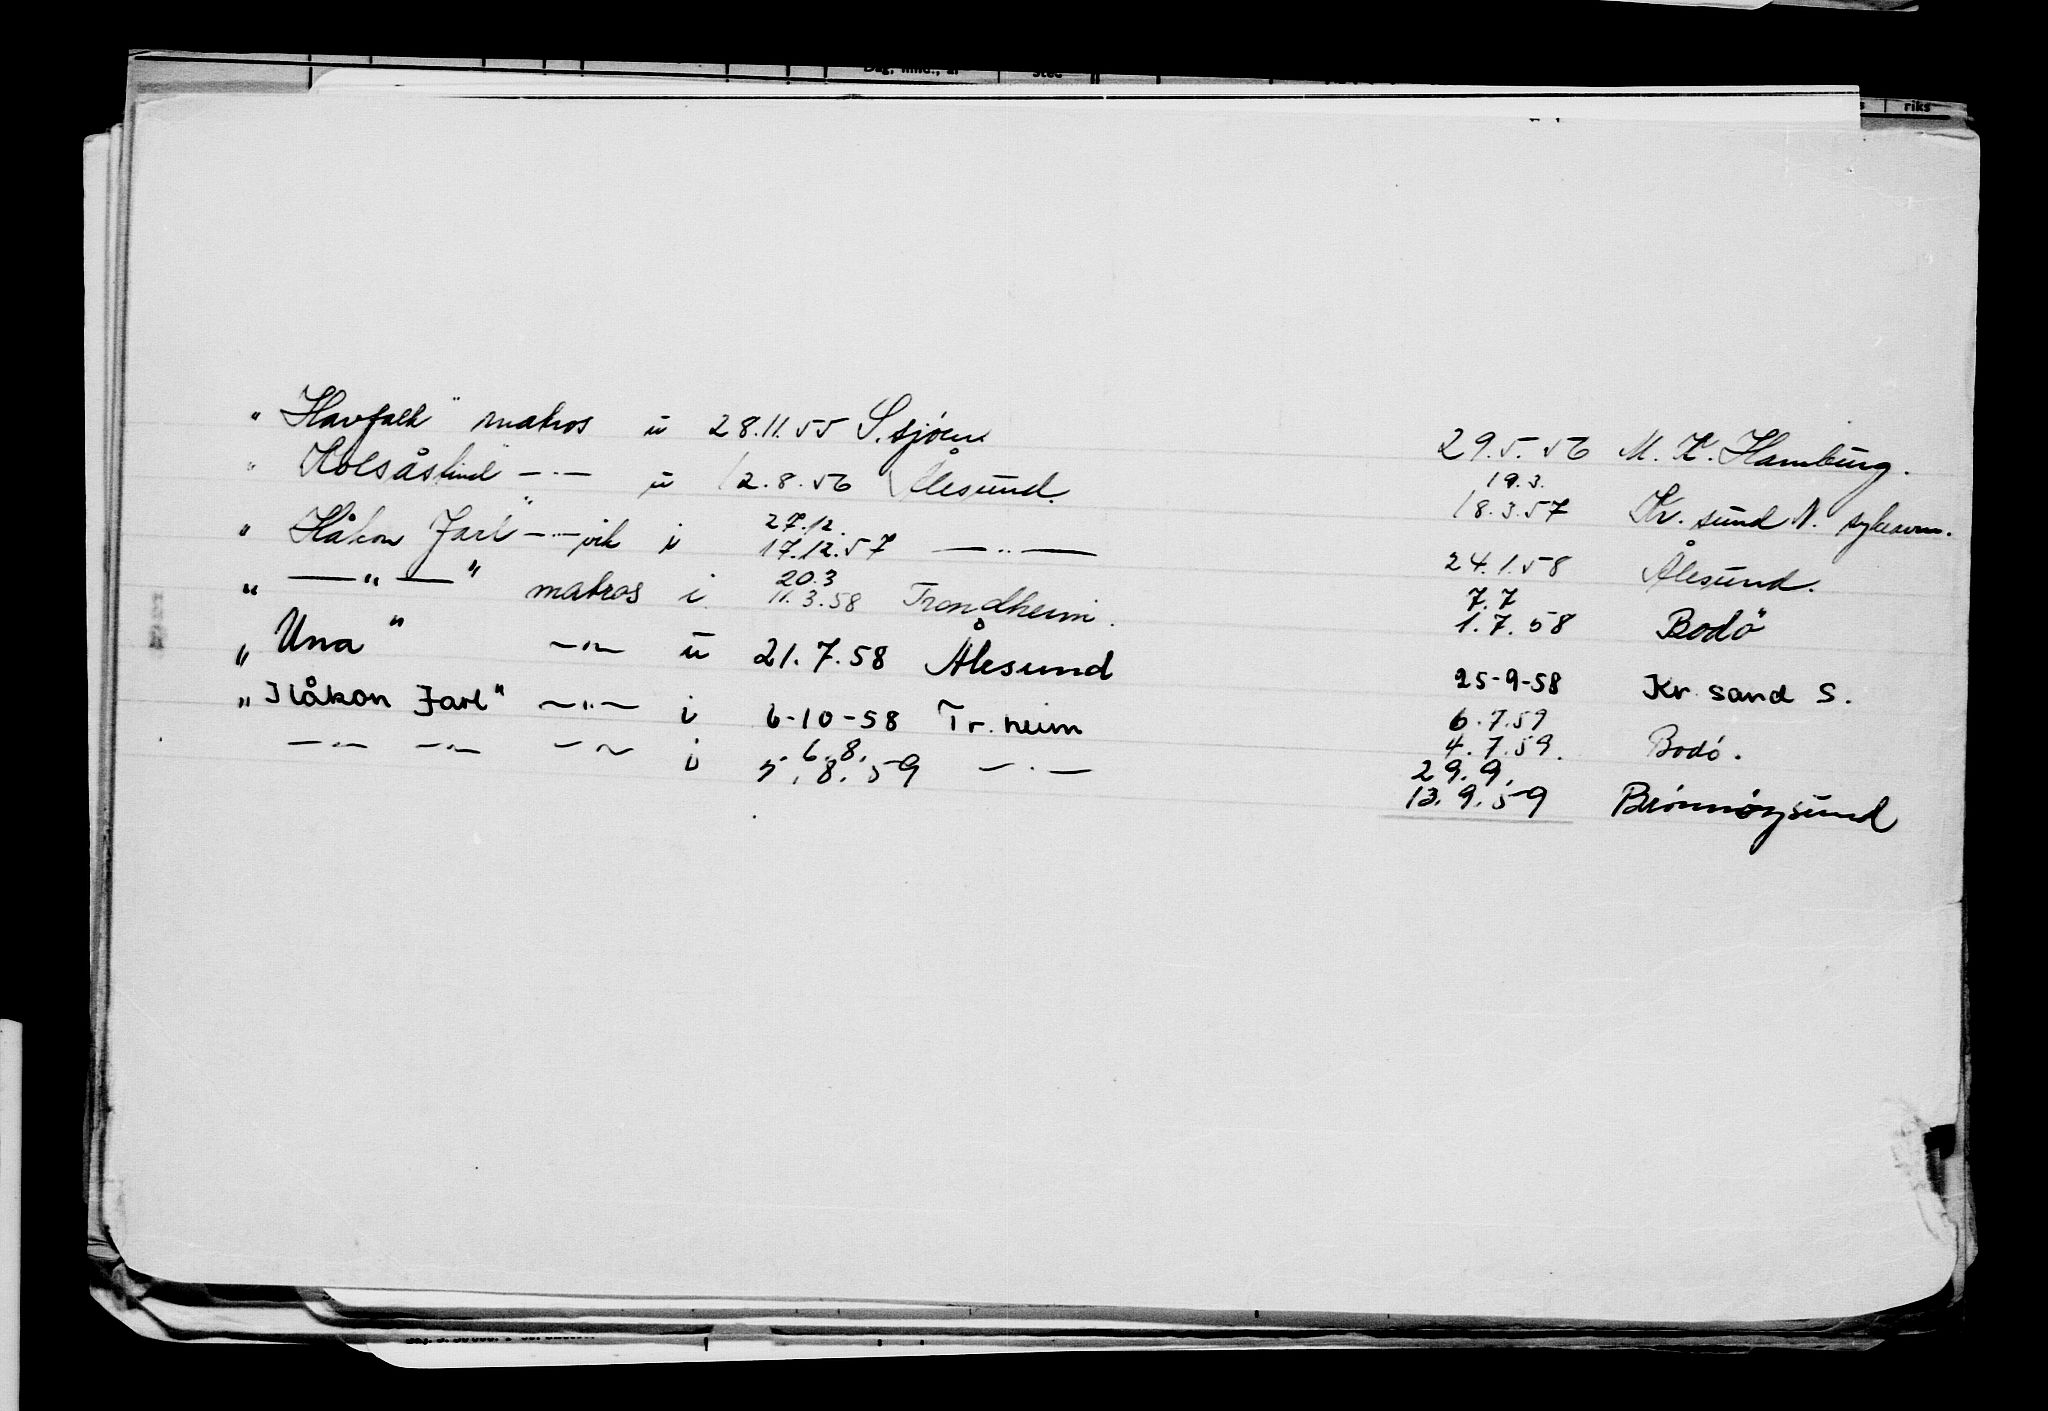 Dag, mnd., år sted
riks
„ Havfalk " matros u 28.11.55 S. sjøen 29.5.56 M. K. Hamburg.
„ Kolsåstind" —〃— u 12.8.56 Ålesund. 19.3. 18.3.57 Kr. sund N.
„ Håkon Jarl" —〃— vik i 27.12. 17.12.57 —〃— 24.1.58 Ålesund.
„ —〃— " matros i 20.3 11.3.58 Trondheim. 7.7 1.7.58 Bodö
„ Una " —〃— u 21.7.58 Ålesund 25-9-58 Kr. sand S.
„ Håkon Jarl" —〃— i 6-10-58 Tr. heim 6.7.59 4.7.59. Bodó.
—〃— —〃— —〃— i 6.8. 5.8.59 —〃— 29.9. 13.9.59 Brønnøysund